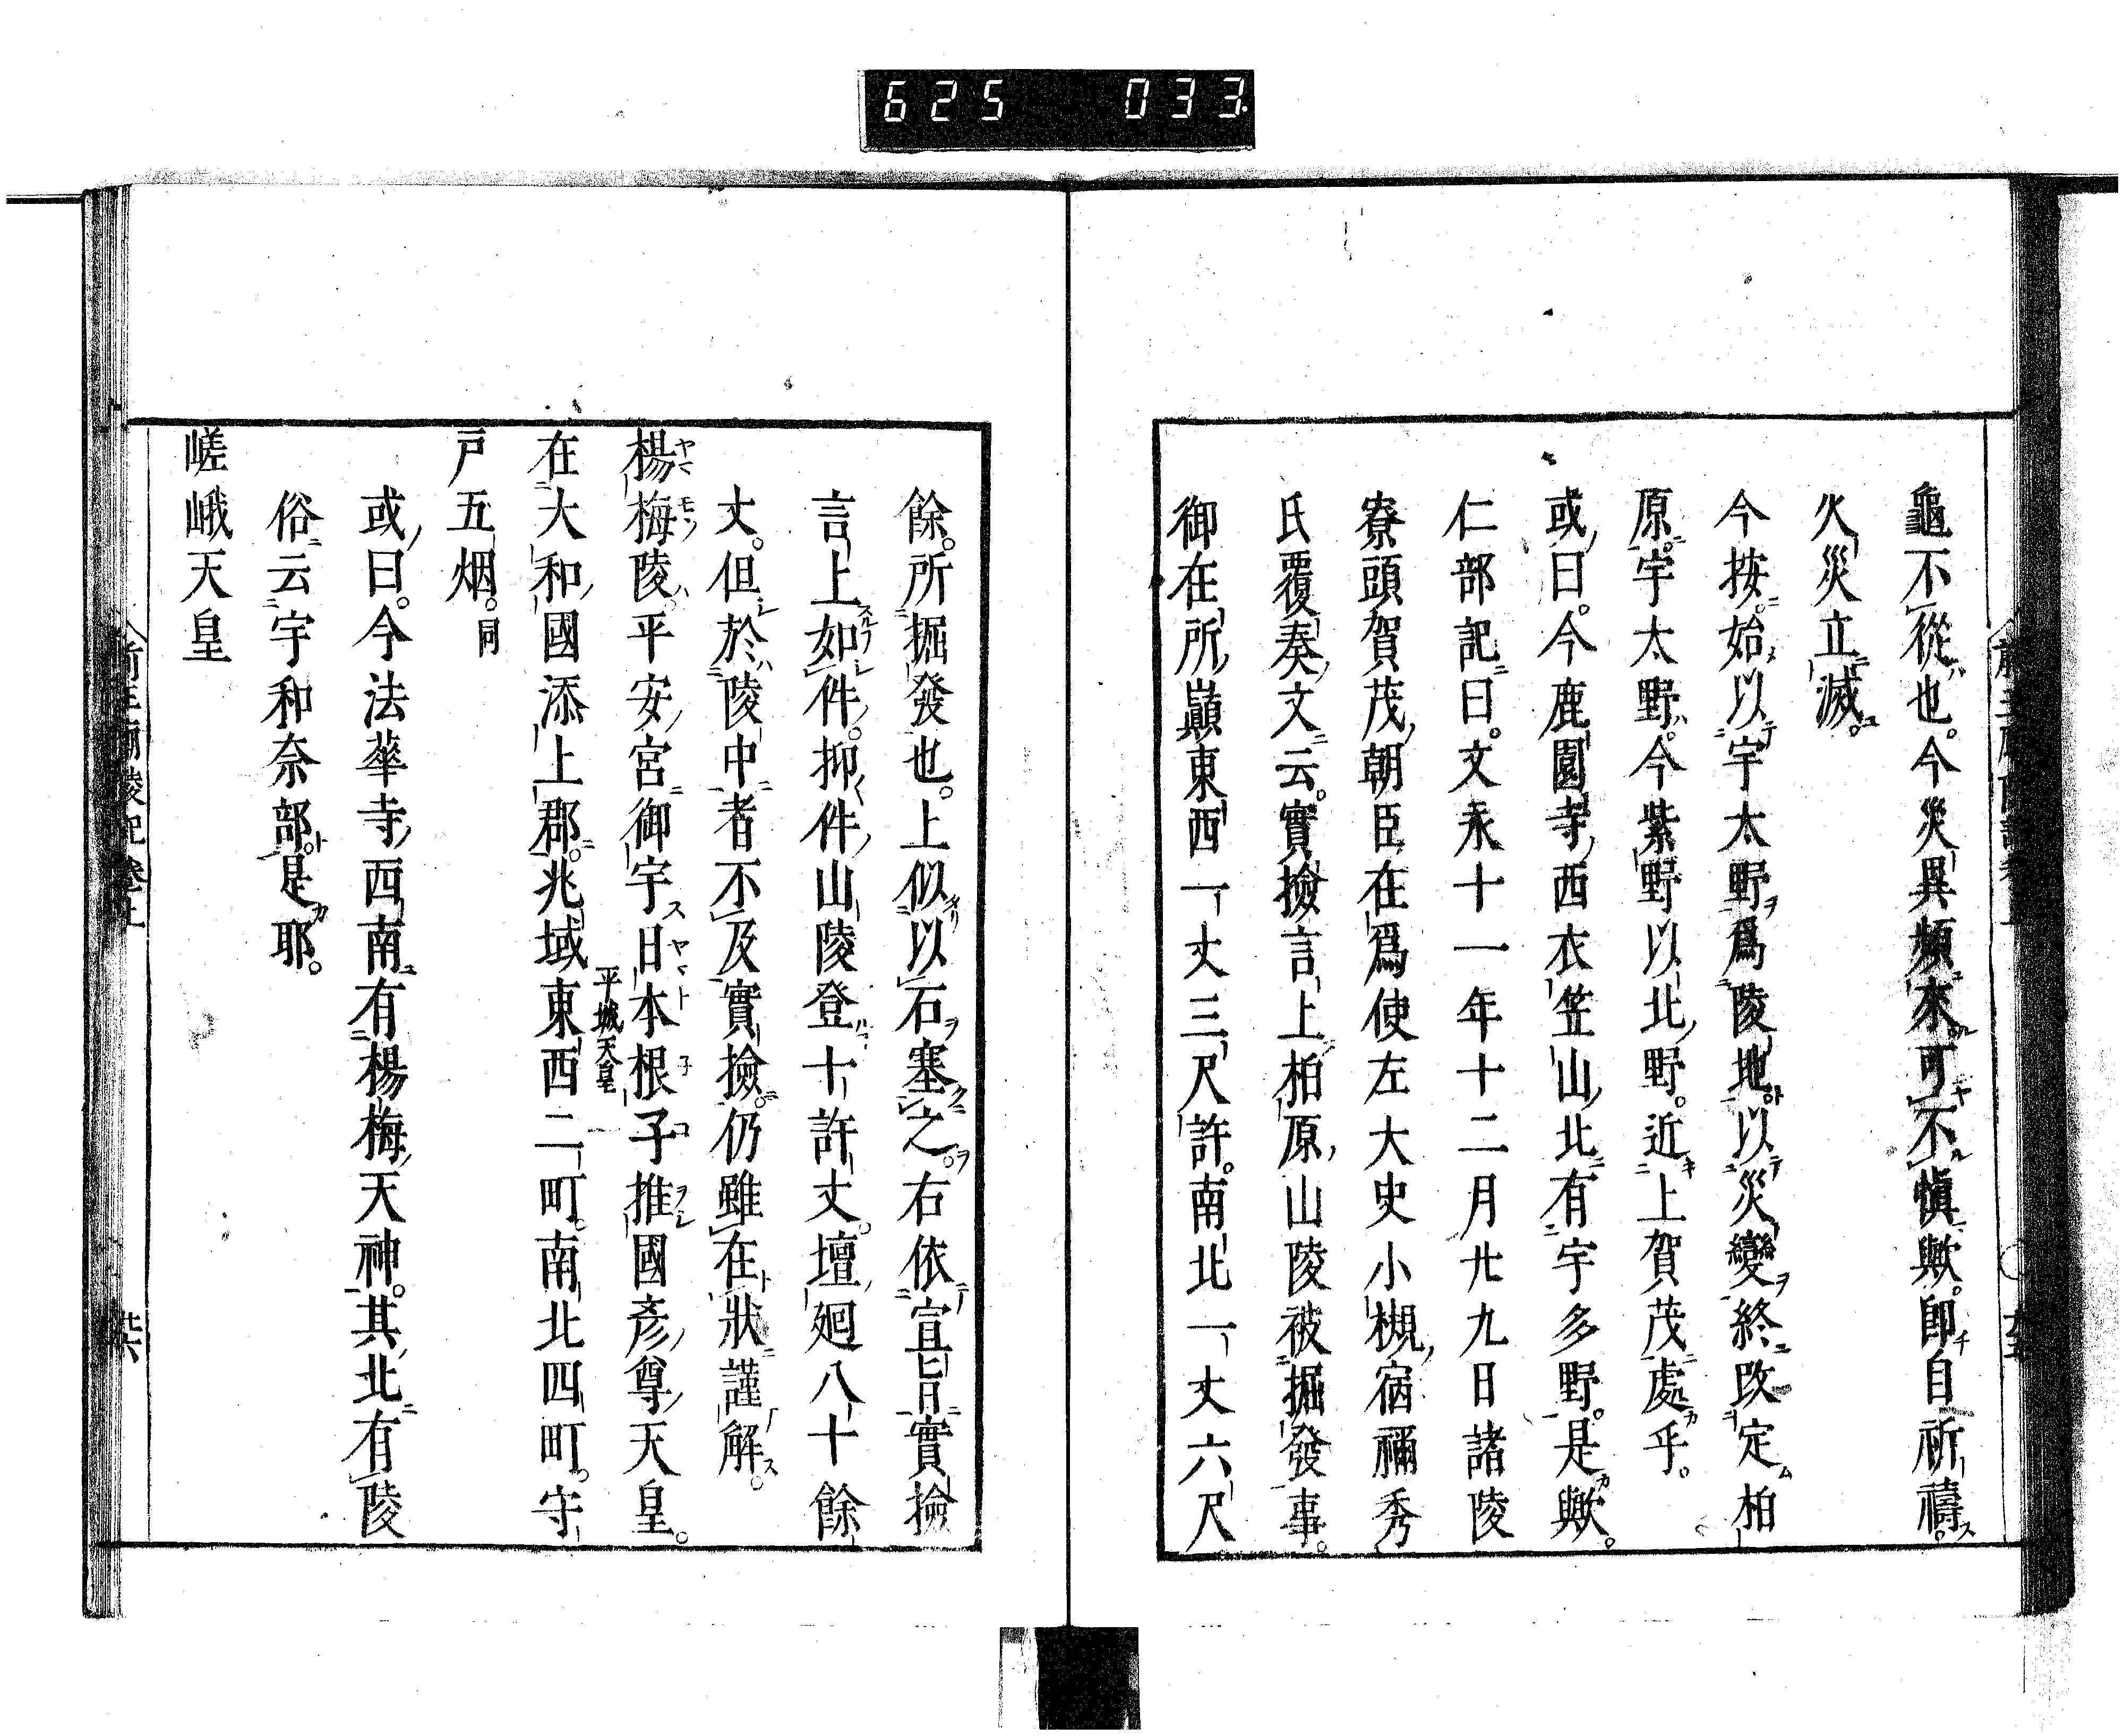 625 033
龜不從也。今災異頻來可不愼歟。卽自祈禱。
火災立滅。
今按。始以宇太野爲陵地。以災變終改定柏
原。宇太野。今紫野以北野。近上賀茂處乎。
或曰。今鹿園寺西衣笠山北有宇多野。是歟。
仁部記曰。文永十一年十二月廿九日諸陵
寮頭賀茂朝臣在爲使左大史小槻宿禰秀
氏覆奏文云。實撿言上柏原山陵被掘發事。
御在所巓東西一丈三尺許。南北一丈六尺
餘。所掘發也。上似以石塞之。右依宣旨實撿
言上如件。抑件山陵登十許丈。壇廻八十餘
丈。但於陵中者不及實撿。仍雖在狀謹解。
楊梅陵。平安宮御宇日本根子推國彥尊天皇。
平城天皇
在大和國添上郡。兆域東西二町。南北四町。守
戸五烟。同
或曰。今法華寺西南有楊梅天神。其北有陵
俗云宇和奈部。是耶。
嵯峨天皇